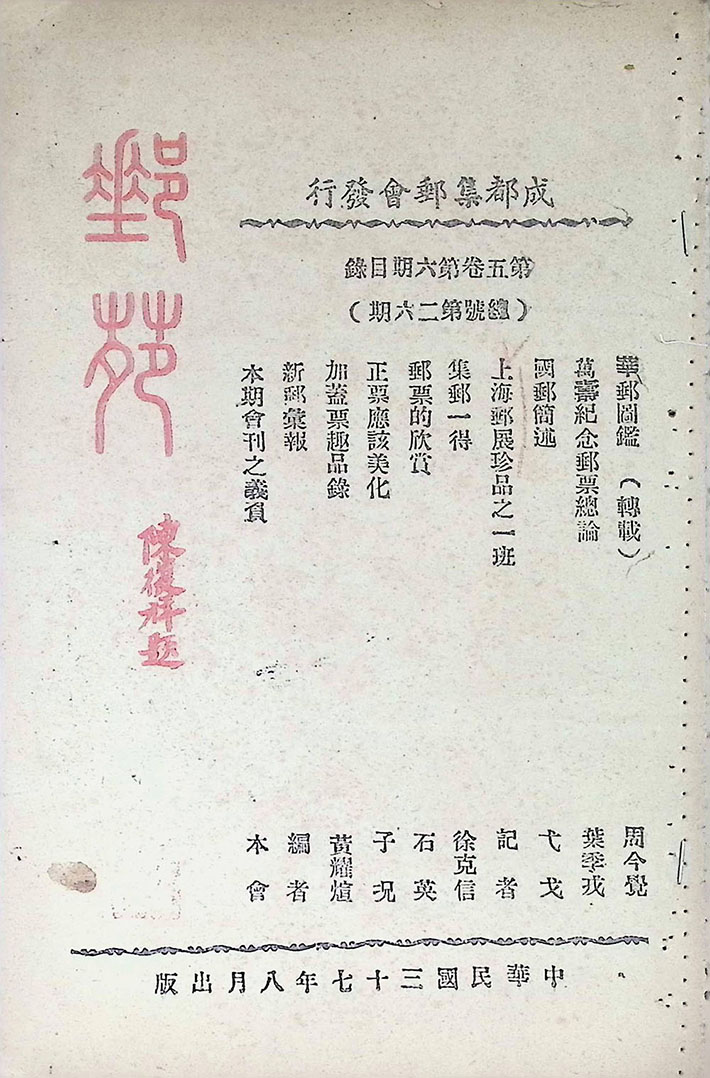 成都集郵會發行
第五卷第六期目錄
（總號第二六期）
華郵圖鑑（轉載） 周今覺
萬壽紀念郵票總論 葉季戎
國郵簡述 弋戈
上海郵展珍品之一班 記者
集郵一得 徐克信
郵票的欣賞 石英
正票應該美化 子況
加蓋票趣品錄 黃耀煊
新郵彙報 編者
本期會刊之義頁 本會
郵苑
陳復祥題
中華民國三十七年八月出版